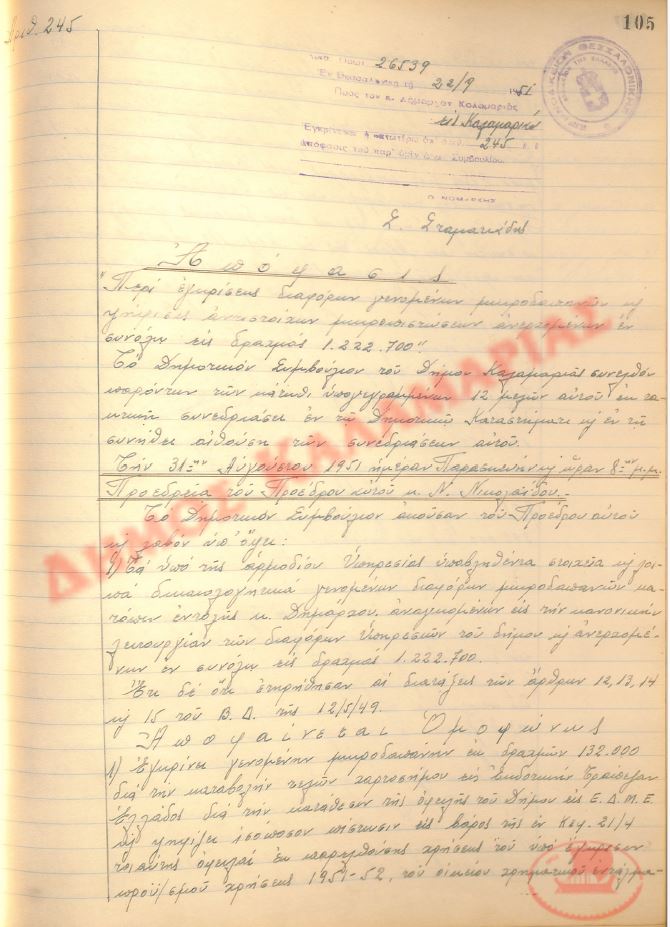 Αριθ. 245
105
26539
Ἐν Θεσσαλονίκῃ τῇ 22/9 1951
Πρὸς τὸν κ. Δήμαρχον Καλαμαριᾶς
εἰς Καλαμαριὰ
Ἐγκρίνεται ἡ 245
ἀπόφασις τοῦ παρ' ὑμῖν Δημ. Συμβουλίου
Σ. Σταματιάδης
Ἀπόφασις
"Περὶ ἐγκρίσεως διαφόρων γενομένων μικροδαπανῶν κ
ψηφίσεως ἀντιστοίχων μικροπιστώσεων ἀνερχομένων ἐν
συνόλῳ εἰς δραχμὰς 1.222.700"
Τὸ Δημοτικὸν Συμβούλιον τοῦ Δήμου Καλαμαριᾶς συνελθὸν
παρόντων τῶν κάτωθι ὑπογεγραμμένων 12 μελῶν αὐτοῦ ἐν τα-
κτικῇ συνεδριάσει ἐν τῷ Δημοτικῷ Καταστήματι κ ἐν τῇ
συνήθει αἰθούσῃ τῶν συνεδριάσεων αὐτοῦ.
Τὴν 31ην Αὐγούστου 1951 ἡμέραν Παρασκευὴν κ ὥραν 8ην μ.μ.
Προεδρείᾳ τοῦ Προέδρου αὐτοῦ κ. Ν. Νικολαΐδου.-
Τὸ Δημοτικὸν Συμβούλιον ἀκοῦσαν τοῦ Προέδρου αὐτοῦ
κ λαβὸν ὑπ' ὄψει:
1) Τὰ ὑπὸ τῆς ἁρμοδίου Ὑπηρεσίας ὑποβληθέντα στοιχεῖα κ λοι-
πὰ δικαιολογητικὰ γενομένων διαφόρων μικροδαπανῶν κα-
τόπιν ἐντολῆς κ. Δημάρχου, ἀναγκαιουσῶν εἰς τὴν κανονικὴν
λειτουργίαν τῶν διαφόρων Ὑπηρεσιῶν τοῦ δήμου κ ἀνερχομέ-
νων ἐν συνόλῳ εἰς δραχμὰς 1.222.700.
Ἔτι δὲ ὅτι ἐτηρήθησαν αἱ διατάξεις τῶν ἄρθρων 12, 13, 14
κ 15 τοῦ Β.Δ. τῆς 12/5/49.
Ἀποφαίνεται Ὁμοφώνως
1) Ἐγκρίνει γενομένην μικροδαπάνην ἐκ δραχμῶν 132.000
διὰ τὴν καταβολὴν τελῶν χαρτοσήμου εἰς Ἐκδοτικὴν Τράπεζαν
Ἑλλάδος διὰ τὴν κατάθεσιν τῆς ὀφειλῆς τοῦ Δήμου εἰς Ε.Δ.Μ.Ε
κ ψηφίζει ἰσόποσον πίστωσιν εἰς βάρος τῆς ἐν Κεφ. 21/4
τοιαύτης ὀφειλαὶ ἐκ παρελθούσης χρήσεως τοῦ ὑπὸ ἔγκρισιν
προϋ/σμοῦ χρήσεως 1951-52, τοῦ οἰκείου χρηματικοῦ ἐντάλμα-
ΔΗΜΟΣ ΚΑΛΑΜΑΡΙΑΣ